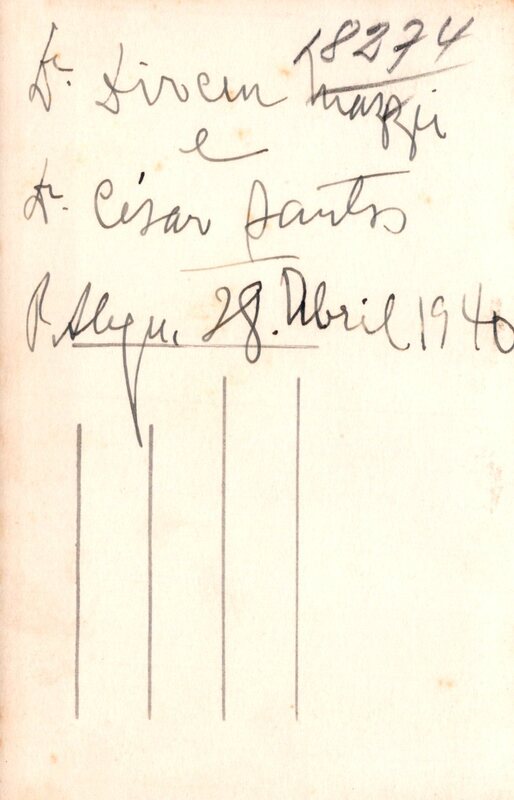 18274
Dr. Dirceu
e
Dr. César Santos
P. Alegre, 28. Abril 1940